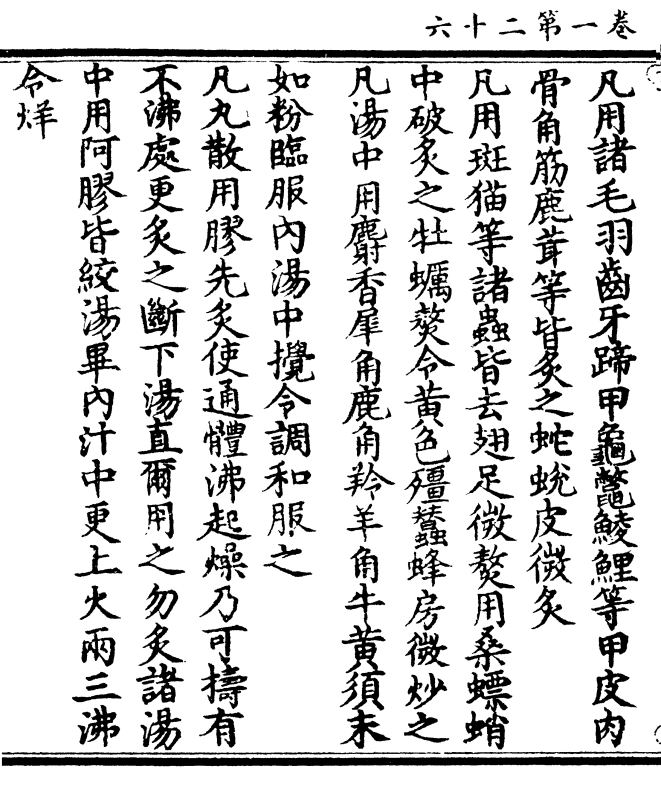 卷一第二十六
凡用諸毛羽齒牙蹄甲龜鼈鯪鯉等甲皮肉
骨角筋鹿茸等皆炙之蛇蛻皮微炙
凡用斑猫等諸蟲皆去翅足微熬用桑螵蛸
中破炙之牡蠣熬令黃色殭蠶蜂房微炒之
凡湯中用麝香犀角鹿角羚羊角牛黃須末
如粉臨服內湯中攪令調和服之
凡丸散用膠先炙使通體沸起燥乃可擣有
不沸處更炙之斷下湯直爾用之勿炙諸湯
中用阿膠皆絞湯畢內汁中更上火兩三沸
令烊